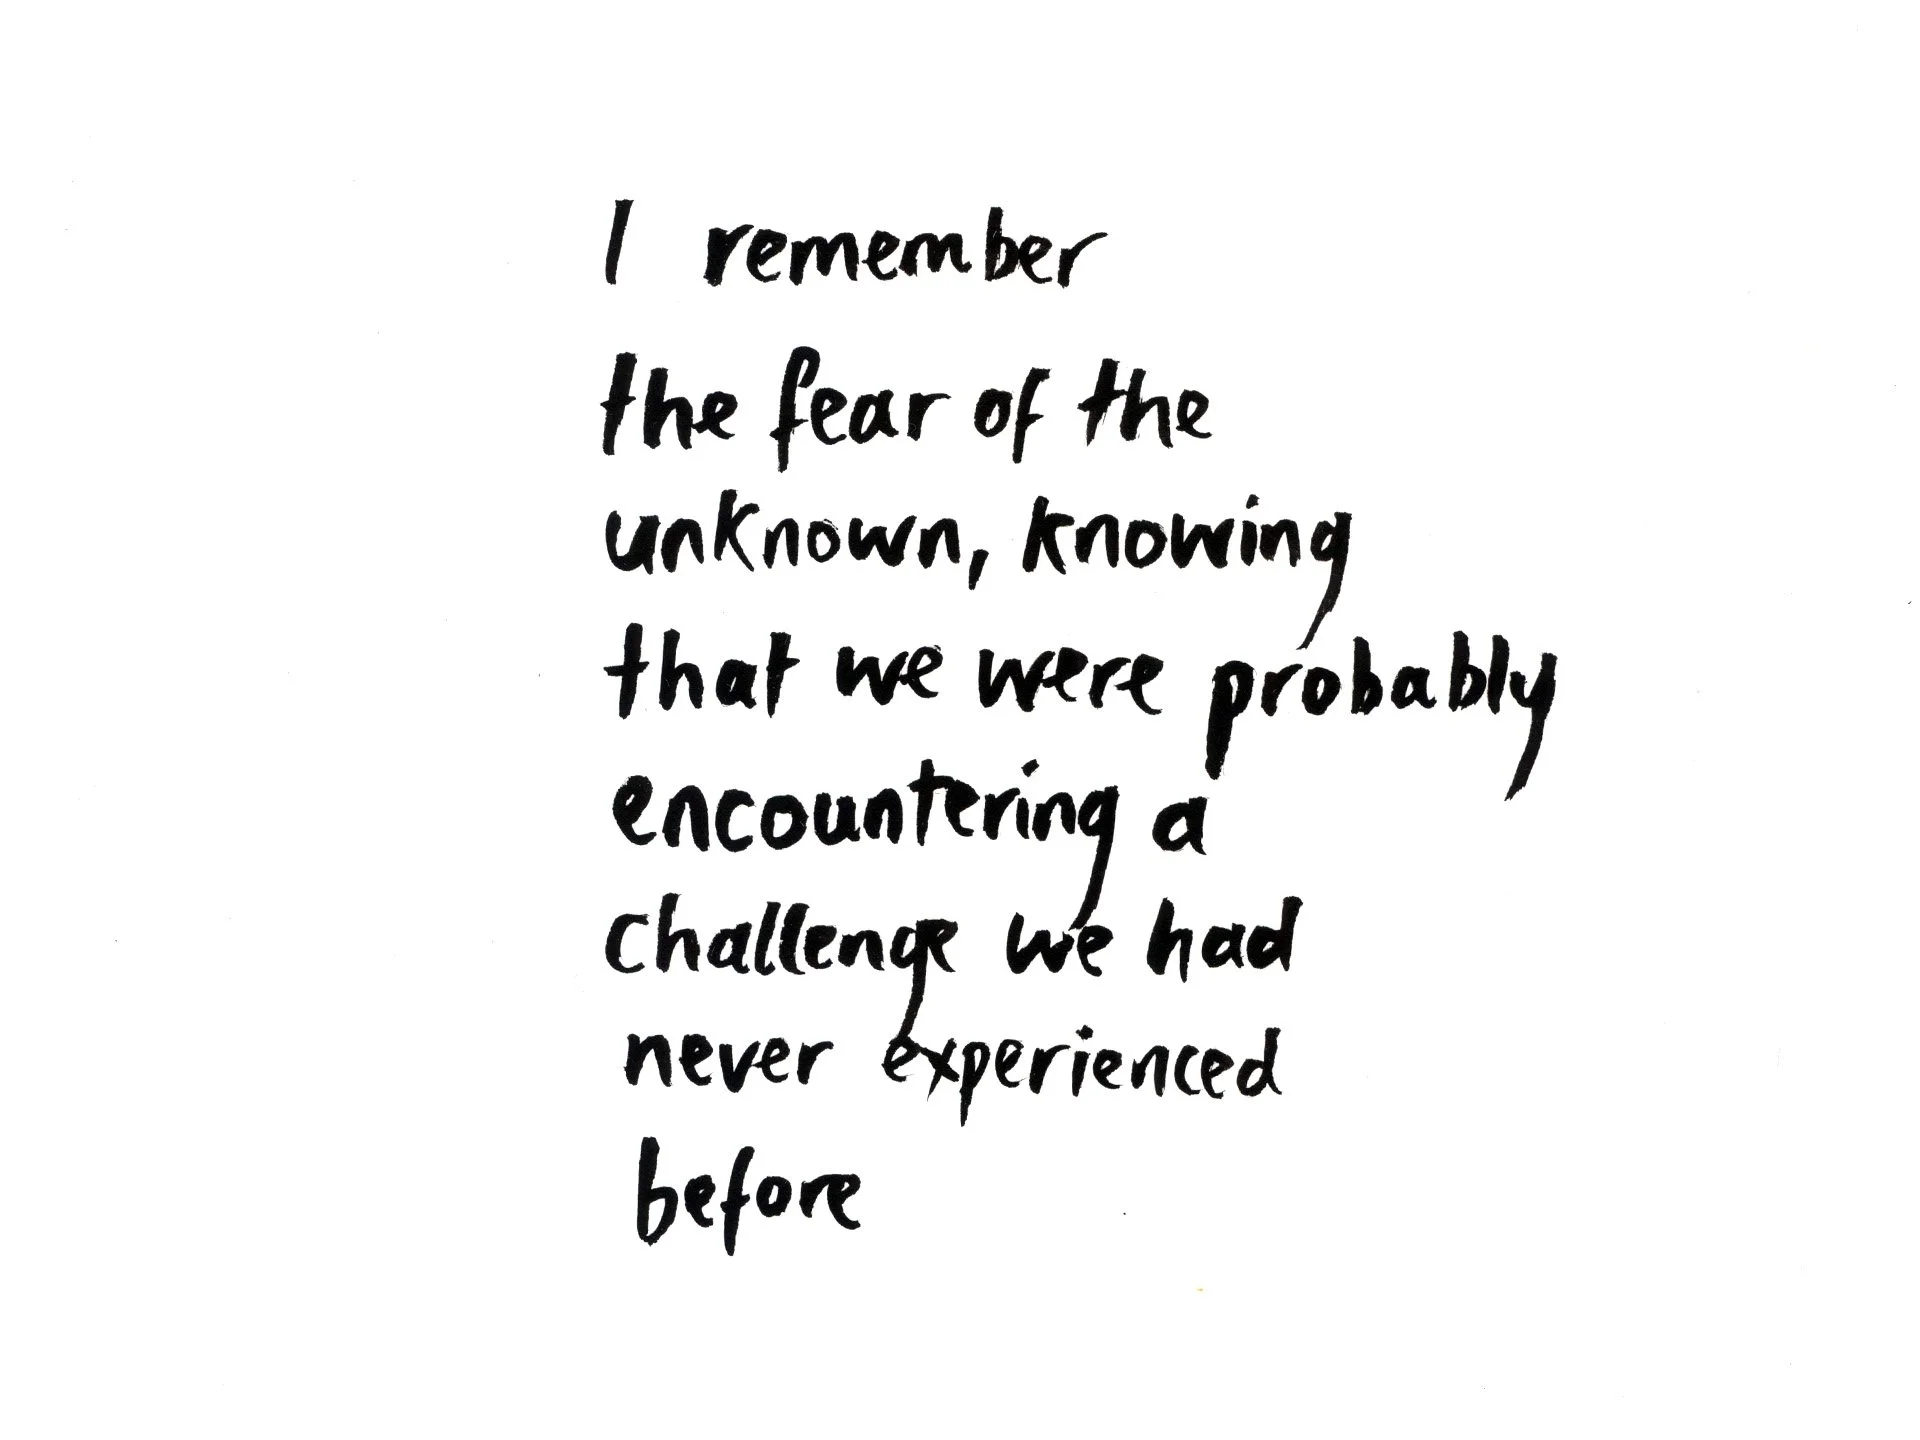 I remember
the fear of the
unknown, knowing
that we were probably
encountering a
challenge we had
never experienced
before